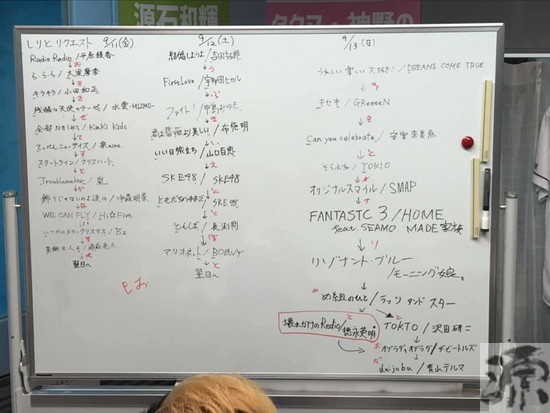 源石和輝
しりとりリクエスト 9/11(金)
Radio Radio/平原綾香
ら・ら・ら/大黒摩季
キラキラ/小田和正
残酷な天使のテーゼ/水雲-MIZMO-
全部だきしめて/KinKi Kids
スタートライン/クリスハート
Troublemaker/嵐
飾りじゃないのよ涙は/中森明菜
WE CAN FLY/Hi☆Five
いつかのメリークリスマス/B'z
翌日へ
9/12(土)
結婚しようよ/吉田拓郎
First Love/宇多田ヒカル
ファイト!/中島みゆき
君は薔薇より美しい/布施明
いい日旅立ち/山口百恵
SKE48/SKE48
とんぼ/長渕剛
マリオネット/BOØWY
翌日へ
9/13(日)
うれしい!楽しい!大好き!/DREAMS COME TRUE
キセキ/GReeeeN
Can you celebrate/安室奈美恵
オリジナルスマイル/SMAP
FANTASTC 3/HOME
feat. SEAMO MADE 家族
リゾナント・ブルー
/モーニング娘。
め組のひと/ラッツアンドスター
壊れかけのRadio/徳永英明
TOKIO/沢田研二
オブラディオブラダ/ザ・ビートルズ
daijobu/青山テルマ
源